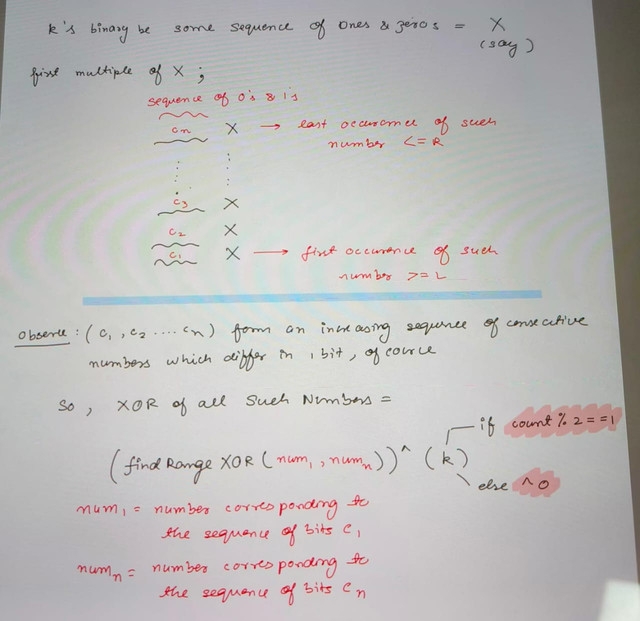 k's binary be some sequence of ones & zeros = X
(say)
first multiple of X ;
sequence of 0's & 1's
cn X → last occurance of such
number <= R
c3 X
c2 X
c1 X → first occurence of such
number >= L
Observe : (c1, c2 .... cn) form an increasing sequence of consecutive
numbers which differ in 1 bit, of cource
So, XOR of all such Numbers =
if count % 2 == 1
(find Range XOR (num1, numn)) ^ (k)
else ^ 0
num1 = number corresponding to
the sequence of bits c1
numn = number corresponding to
the sequence of bits cn